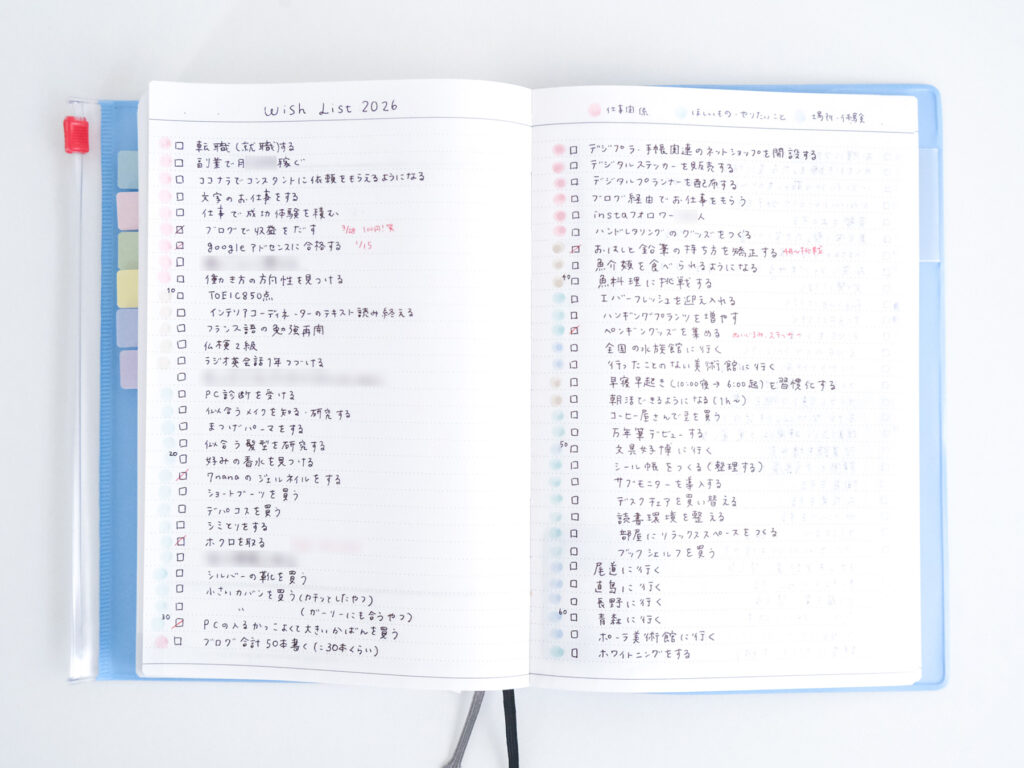 Wish List 2026
転職(就職)する
副業で月 稼ぐ
ココナラでコンスタントに依頼をもらえるようになる
文字のお仕事をする
仕事で成功体験を積む
ブログで収益をだす 3/28
googleアドセンスに合格する 1/15
働き方の方向性を見つける
10 TOEIC850点
インテリアコーディネーターのテキスト読み終える
フランス語の勉強再開
仏検2級
ラジオ英会話1年つづける
PC診断を受ける
似合うメイクを知る・研究する
まつげパーマをする
似合う髪型を研究する
20 好みの香水を見つける
7nanaのジェルネイルをする
ショートブーツを買う
デパコスを買う
シミとりをする
ホクロを取る
シルバーの靴を買う
小さいカバンを買う(カチッとしたやつ)
〃 (ガーリーにも合うやつ)
30 PCの入るかっこよくて大きいかばんを買う
ブログ合計50本書く(+30本くらい)
仕事関係 ほしいもの・やりたいこと 場所・体験
デジプラ・手帳関連のネットショップを開設する
デジタルステッカーを販売する
デジタルプランナーを配布する
ブログ経由でお仕事をもらう
instaフォロワー 人
ハンドレタリングのグッズをつくる
おはしと鉛筆の持ち方を矯正する
魚介類を食べられるようになる
40 魚料理に挑戦する
エバーフレッシュを迎え入れる
ハンギングプランツを増やす
ペンギングッズを集める ぬいぐるみ、ステッカー
全国の水族館に行く
行ったことのない美術館に行く
早寝早起き(10:00後→6:00起)を習慣化する
朝活できるようになる(1h〜)
コーヒー屋さんで豆を買う
万年筆デビューする
50 文具女子博に行く
シール帳をつくる(整理する)
サブモニターを導入する
デスクチェアを買い替える
読書環境を整える
部屋にリラックススペースをつくる
ブックシェルフを買う
尾道に行く
直島に行く
長野に行く
60 青森に行く
ポーラ美術館に行く
ホワイトニングをする